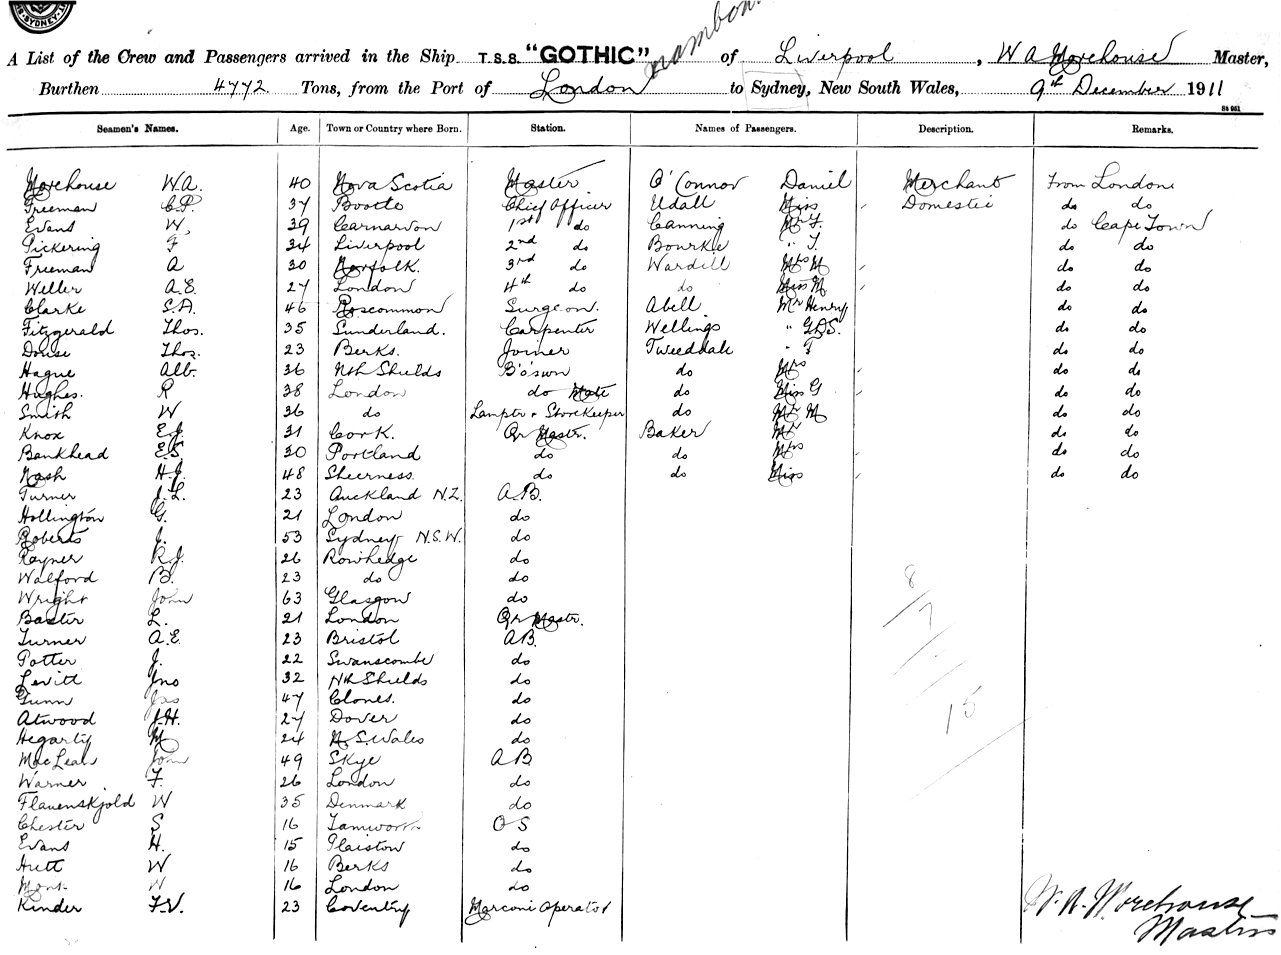 SYDNEY
A List of the Crew and Passengers arrived in the Ship T.S.S. "GOTHIC" of Liverpool, W A Morehouse Master,
Burthen 4772 Tons, from the Port of London to Sydney, New South Wales, 9th December 1911
Seamen's Names. Age. Town or Country where Born. Station. Names of Passengers. Description. Remarks.
Morehouse W.A. 40 Nova Scotia Master O'Connor Daniel Merchant From London
Freeman C.P. 37 Bootle Chief Officer Udall Miss Domestic do do
Evans W. 39 Carnarvon 1st do Canning Mr F. do Cape Town
Pickering F 34 Liverpool 2nd do Bourke " T. do do
Freeman A 30 Norfolk. 3rd do Wardill Mrs M do do
Weller A.E. 27 London 4th do do Miss M do do
Clarke S.A. 46 Roscommon Surgeon. Abell Mr Henry do do
Fitzgerald Thos. 35 Sunderland. Carpenter Wellings " G.D.S. do do
Douse Thos. 23 Berks. Joiner Tweeddale " F do do
Hague Alb. 36 Nth Shields Bo'swn do Mrs do do
Hughes. R 38 London do Mate do Miss G do do
Smith W 36 do Lamptr & Storekeeper do Mr M do do
Knox E.J. 31 Cork. Qr Mastr. Baker Mr do do
Bankhead E.S. 30 Portland do do Mrs do do
Nash H.J. 48 Sheerness. do do Miss do do
Turner J.L. 23 Auckland N.Z. A.B.
Hollington G. 21 London do
Roberts J. 53 Sydney N.S.W. do
Rayner R.J. 26 Rowhedge do
Walford B. 23 do do
Wright John 63 Glasgow do
Baxter L. 21 London Qr Mastr.
Turner A.E. 23 Bristol A.B.
Potter J. 22 Swanscombe do
Levitt Jno 32 Nth Shields do
Gunn Jas 47 Clones. do
Atwood J.H. 27 Dover do
Hegarty M 24 N.S.Wales do
MacLean John 49 Skye A B
Warner F. 26 London do
Flauenskjold W 35 Denmark do
Chester S 16 Tamworth O S
Evans H. 15 Plaistow do
Hutt W 16 Berks do
W 16 London do
Kinder F.V. 23 Coventry Marconi Operator
8
7
15
W.A. Morehouse
Master